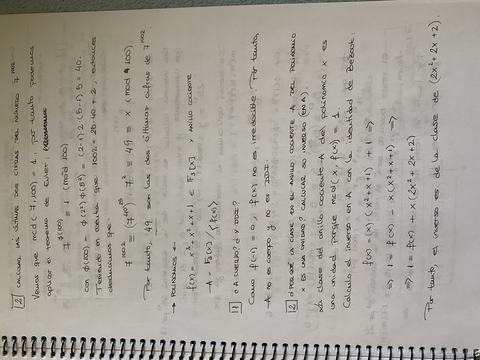 2 CALCULAR LAS ÚLTIMAS DOS CIFRAS DEL NÚMERO 7^1002
Vemos que mcd(7,100) = 1, por tanto podemos
aplicar el teorema de Euler,
7^φ(100) ≡ 1 (mod 100)
con φ(100) = φ(2²) φ(5²) = (2·1)·2·(5-1)·5 = 40.
Teniendo en cuenta que 1002 = 25·40 + 2, entonces
deducimos que:
7^1002 = (7^40)^25 · 7² = 49 ≡ x (mod 100)
Por tanto, 49 son las dos últimas cifras de 7^1002
→ Polinomios ←
f(x) = x³ + x² + x + 1 ∈ F₃[x] y anillo cociente
A = F₃[x] / (f(x))
11 ¿A CUERPO? ¿Y ?
Como f(-1) = 0, f(x) no es irreducible. Por tanto,
A no es cuerpo y no es
12 ¿POR QUÉ LA CLASE EN EL ANILLO COCIENTE A DEL POLINOMIO
x ES UNA UNIDAD? CALCULAR SU INVERSO (EN A)
La clase del anillo cociente A del polinomio x es
una unidad porque mcd(x, f(x)) = 1.
Calculo el inverso en A con la identidad de Bézout.
f(x) = (x)(x²+x+1) + 1 ⇒
⇒ 1 = f(x) - x(x²+x+1) ⇒
⇒ 1 = f(x) + x(2x²+2x+2)
Por tanto, el inverso es de la clase de (2x²+2x+2).